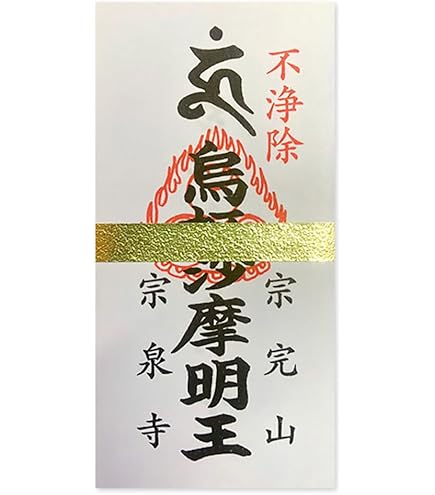 不浄除
宗完山
烏沙摩明王
宗泉寺